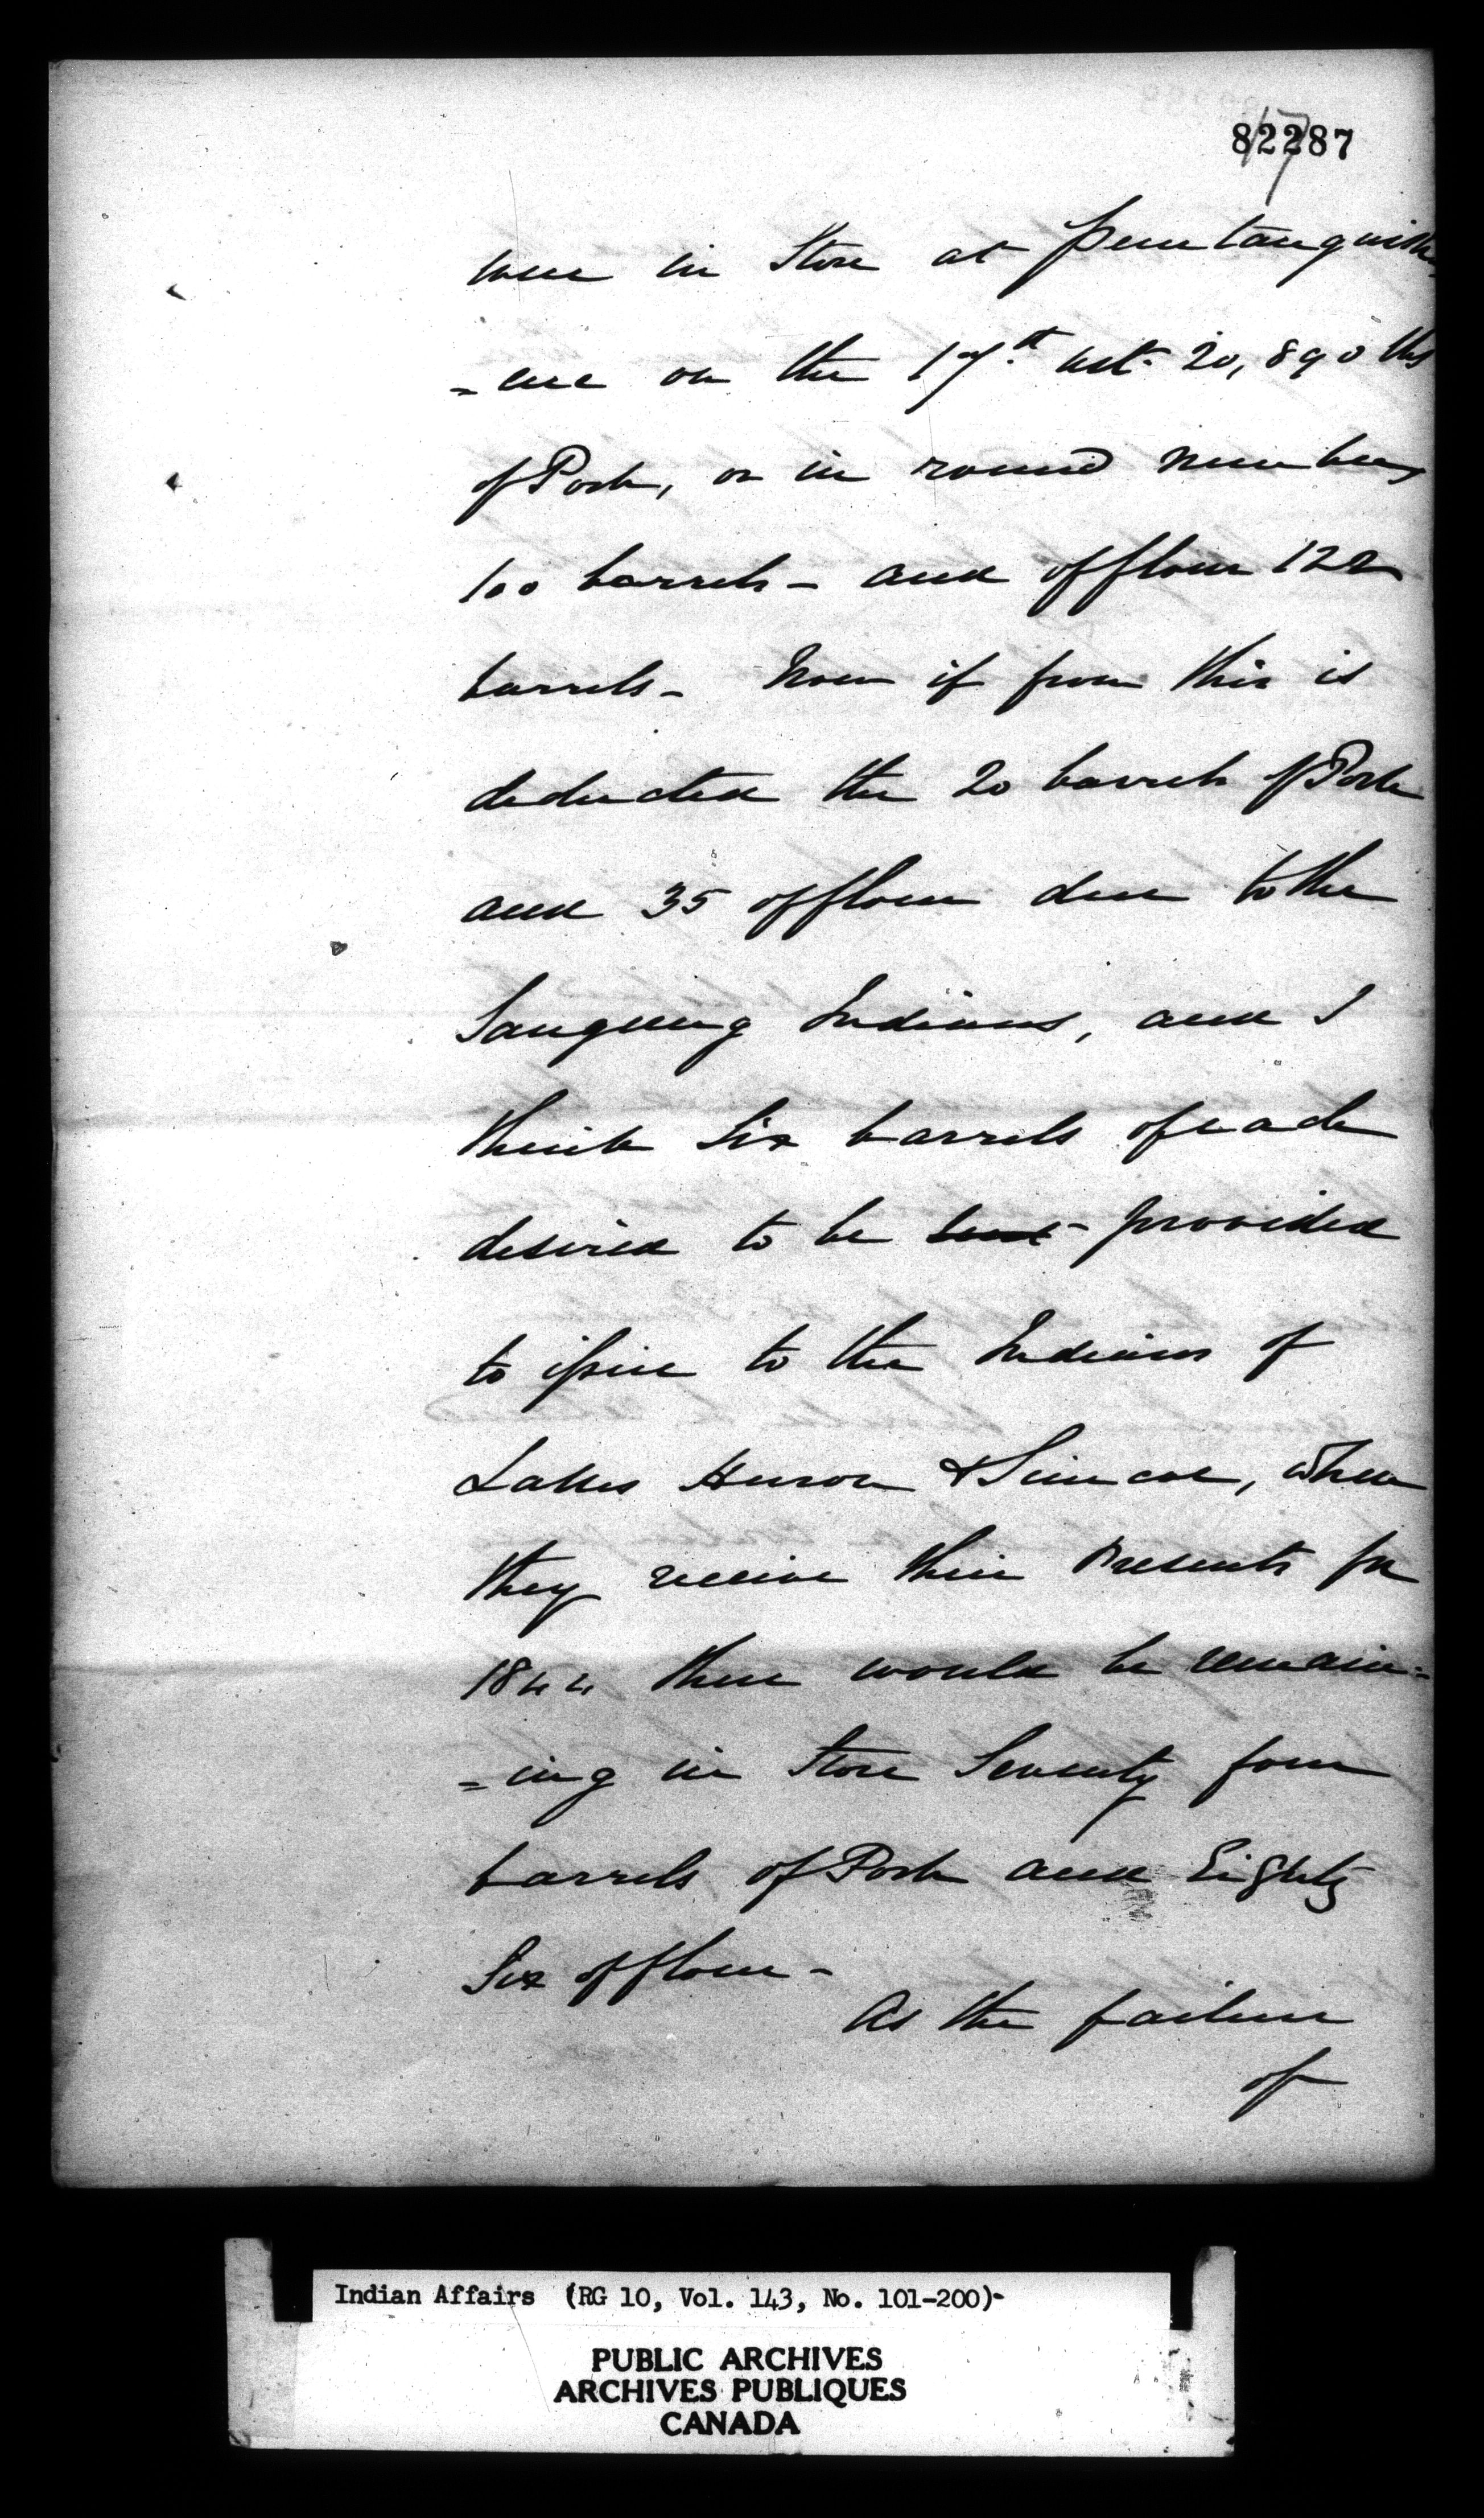 82287
17
were in Store at Penetanguish
=ene on the 17th ult. 20,890 lbs
of Pork, or in round numbers
100 barrels - and of flour 122
barrels - Now if from this is
deducted the 20 barrels of Pork
and 35 of flour due to the
Saugeeng Indians, and I
think Six barrels of each
desired to be sent provided
to issue to the Indians of
Lakes Huron & Simcoe, when
they receive their Presents for
1844 there would be remain=
=ing in Store Seventy four
barrels of Pork and Eighty
Six of flour -
As the failure
of
Indian Affairs (RG 10, Vol. 143, No. 101-200)-
PUBLIC ARCHIVES
ARCHIVES PUBLIQUES
CANADA